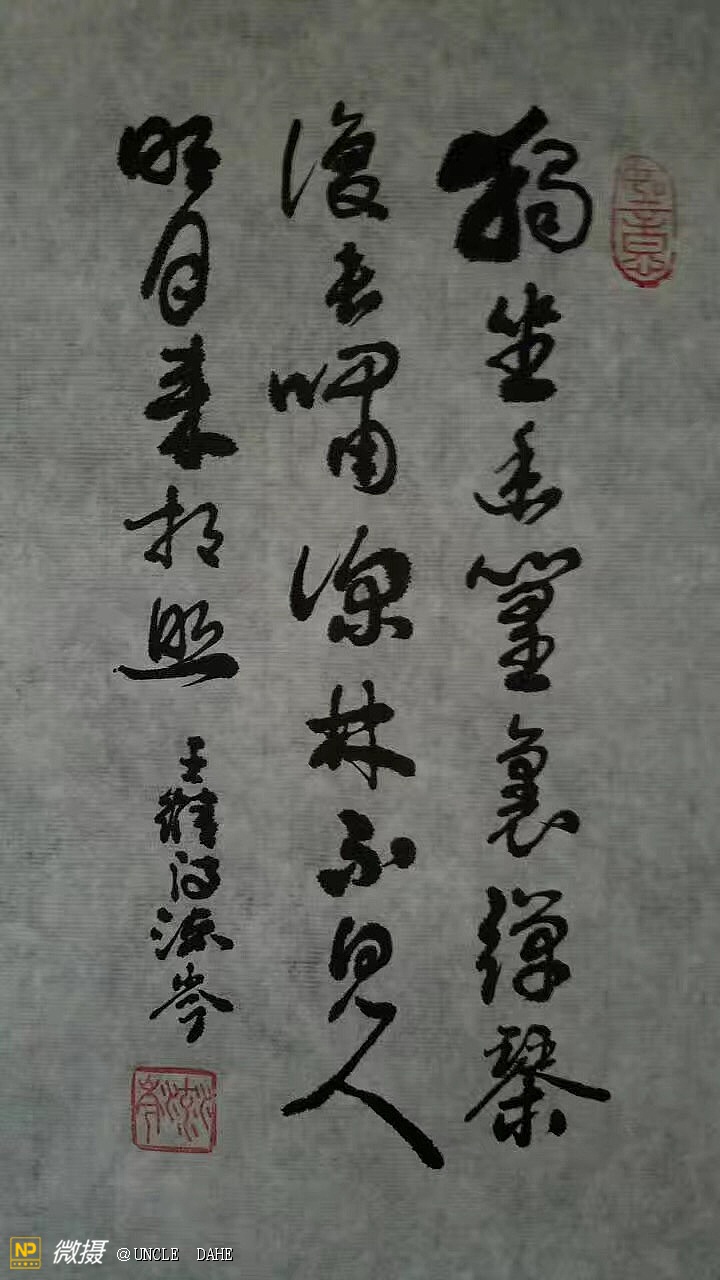 獨坐幽篁裏彈琴
復長嘯深林不見人
明月來相照
王維詩 岑
NP 微摄 @UNCLE DAHE